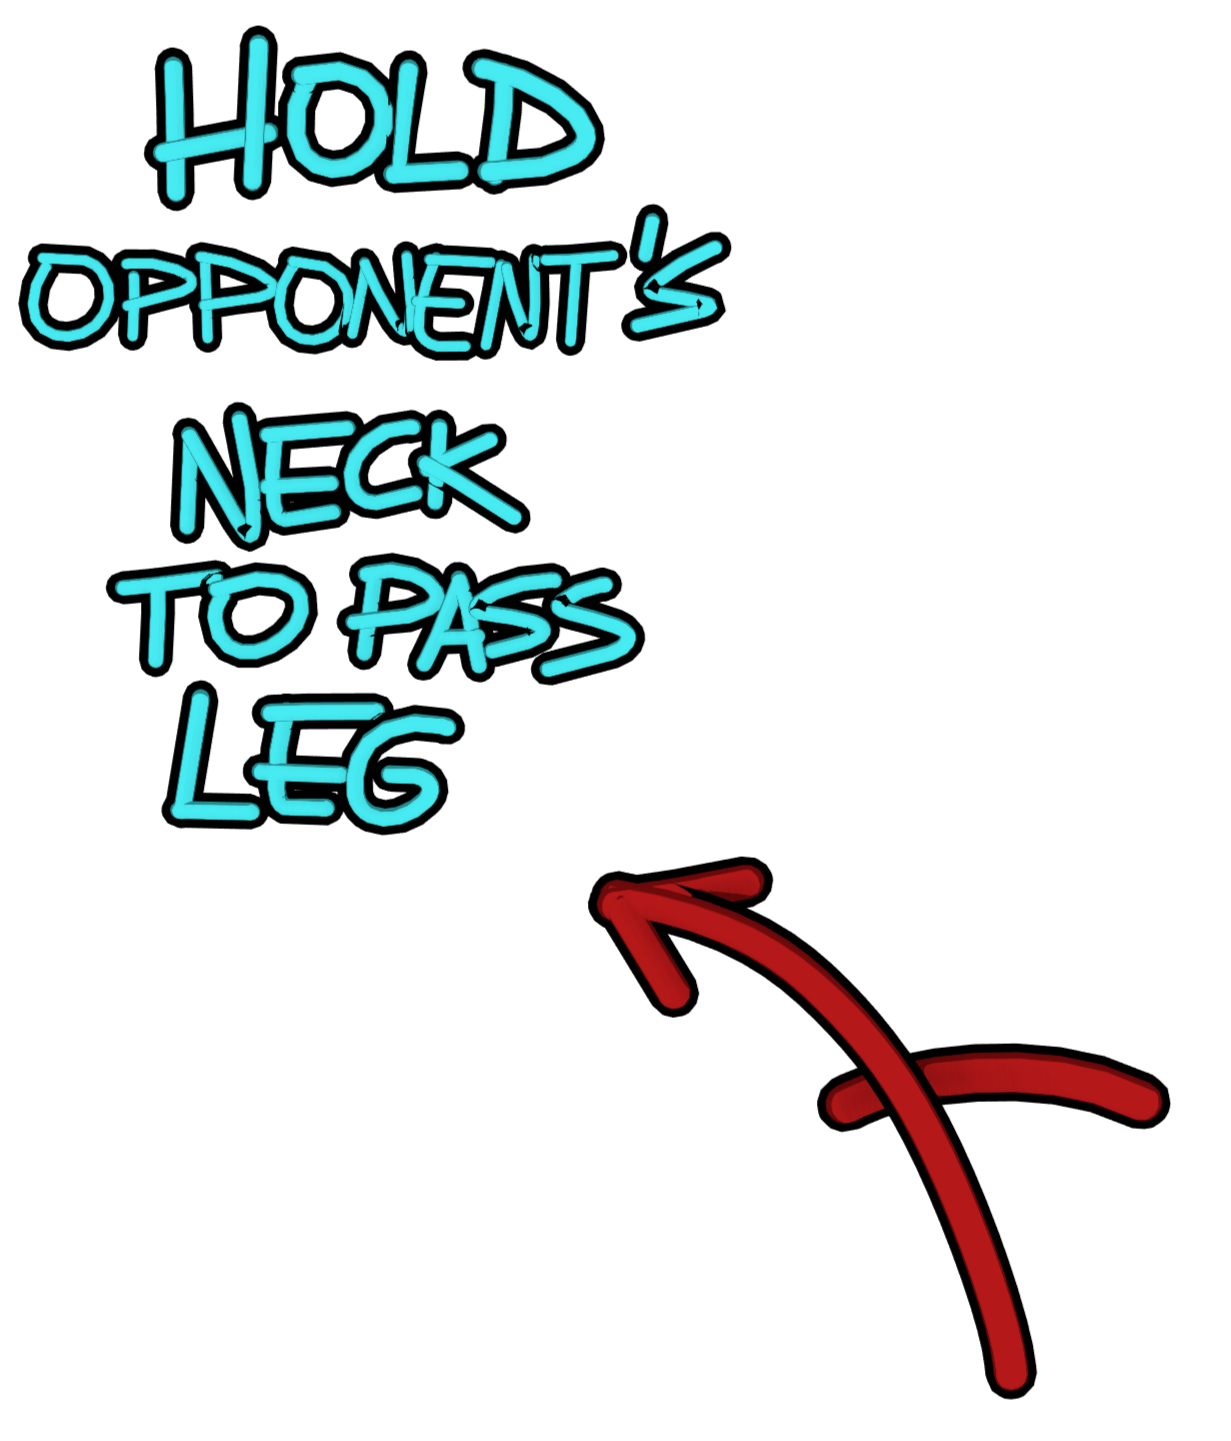 HOLD
OPPONENT'S
NECK
TO PASS
LEG